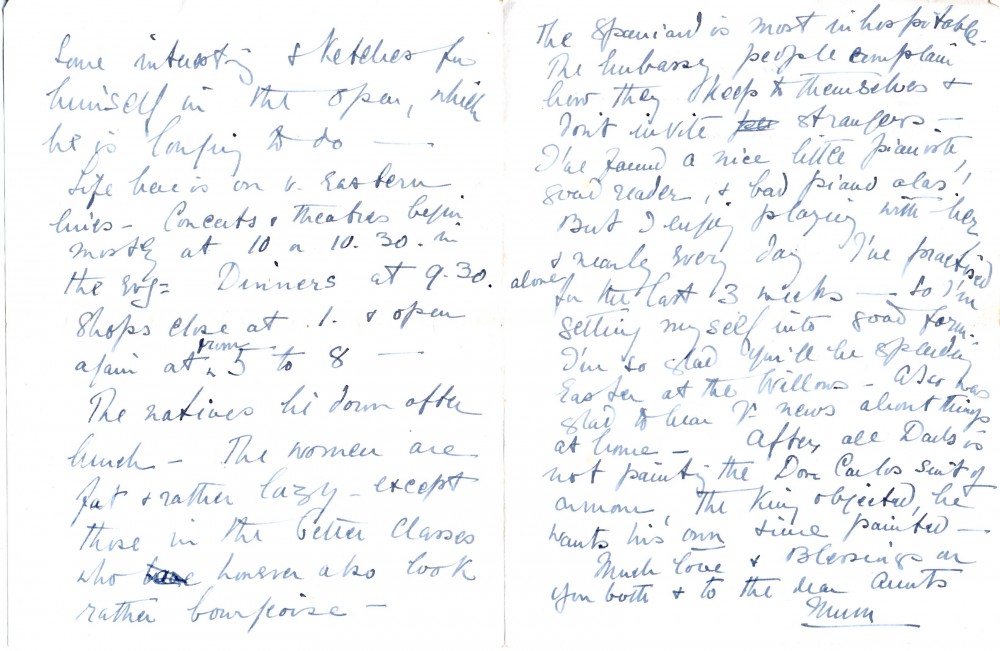 Some interesting sketches for
himself in the open, which
he is longing to do —
Life here is on v. Eastern
lines — Concerts & theatres begin
mostly at 10 or 10.30. in
the evg= Dinners at 9.30.
Shops close at 1. & open
again at from 5 to 8 —
The natives lie down after
lunch — The women are
fat & rather lazy — except
those in the better classes
who however also look
rather bourgoise —
The Spaniard is most inhospitable —
The Embassy people complain
how they keep to themselves &
don't invite strangers —
I've found a nice little pianiste,
good reader, & bad piano alas!
But I enjoy playing with her
& nearly every day I've practised
alone for the last 3 weeks — So I'm
getting myself into good form.
I'm so glad you'll be spending
Easter at the Willows — Also was
glad to hear yr news about things
at home — After all Dads is
not painting the Don Carlos suit of
armour, the King objected, he
wants his own time painted —
Much love & Blessings on
you both & to the dear Aunts
Mum